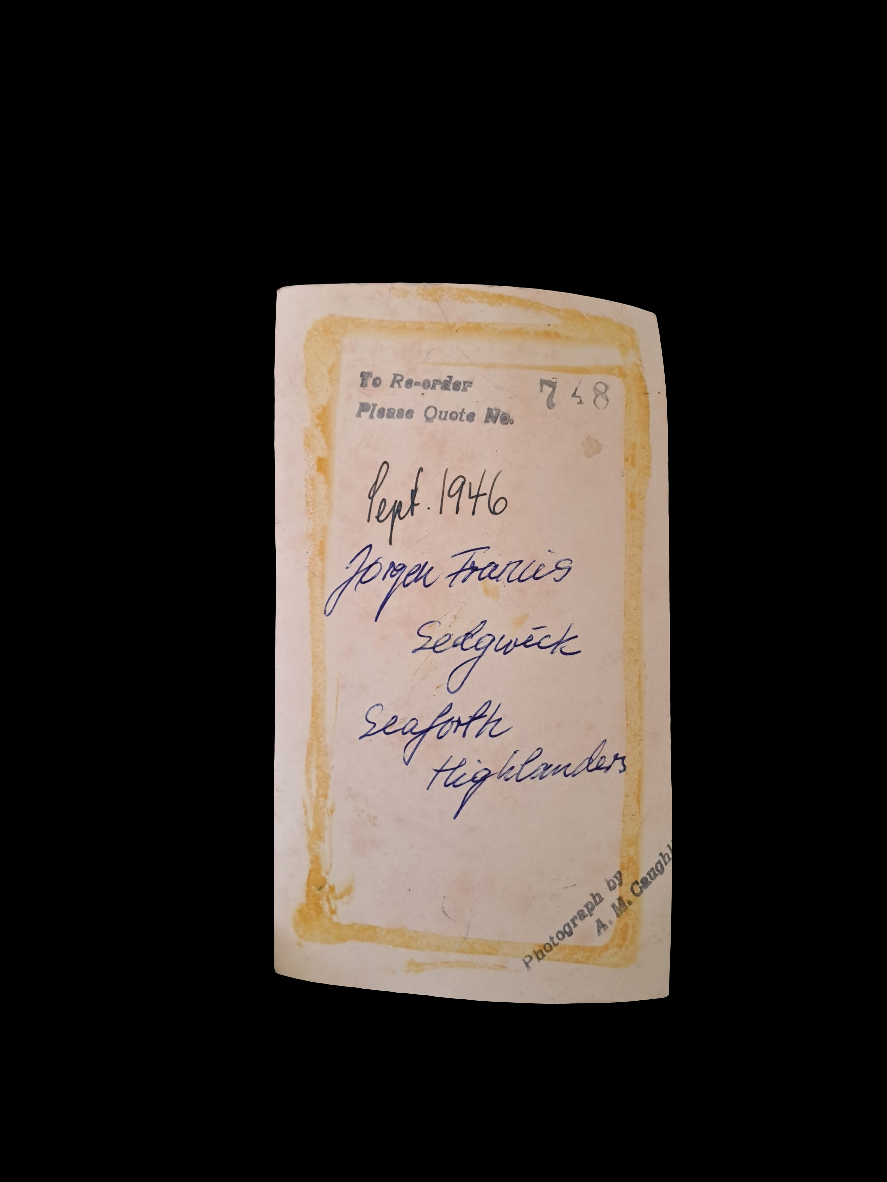 To Re-order 748
Please Quote No.
Sept. 1946
Jörgen Francis
Sedgwick
Seaforth
Highlanders
Photograph by
A. M. Caughl